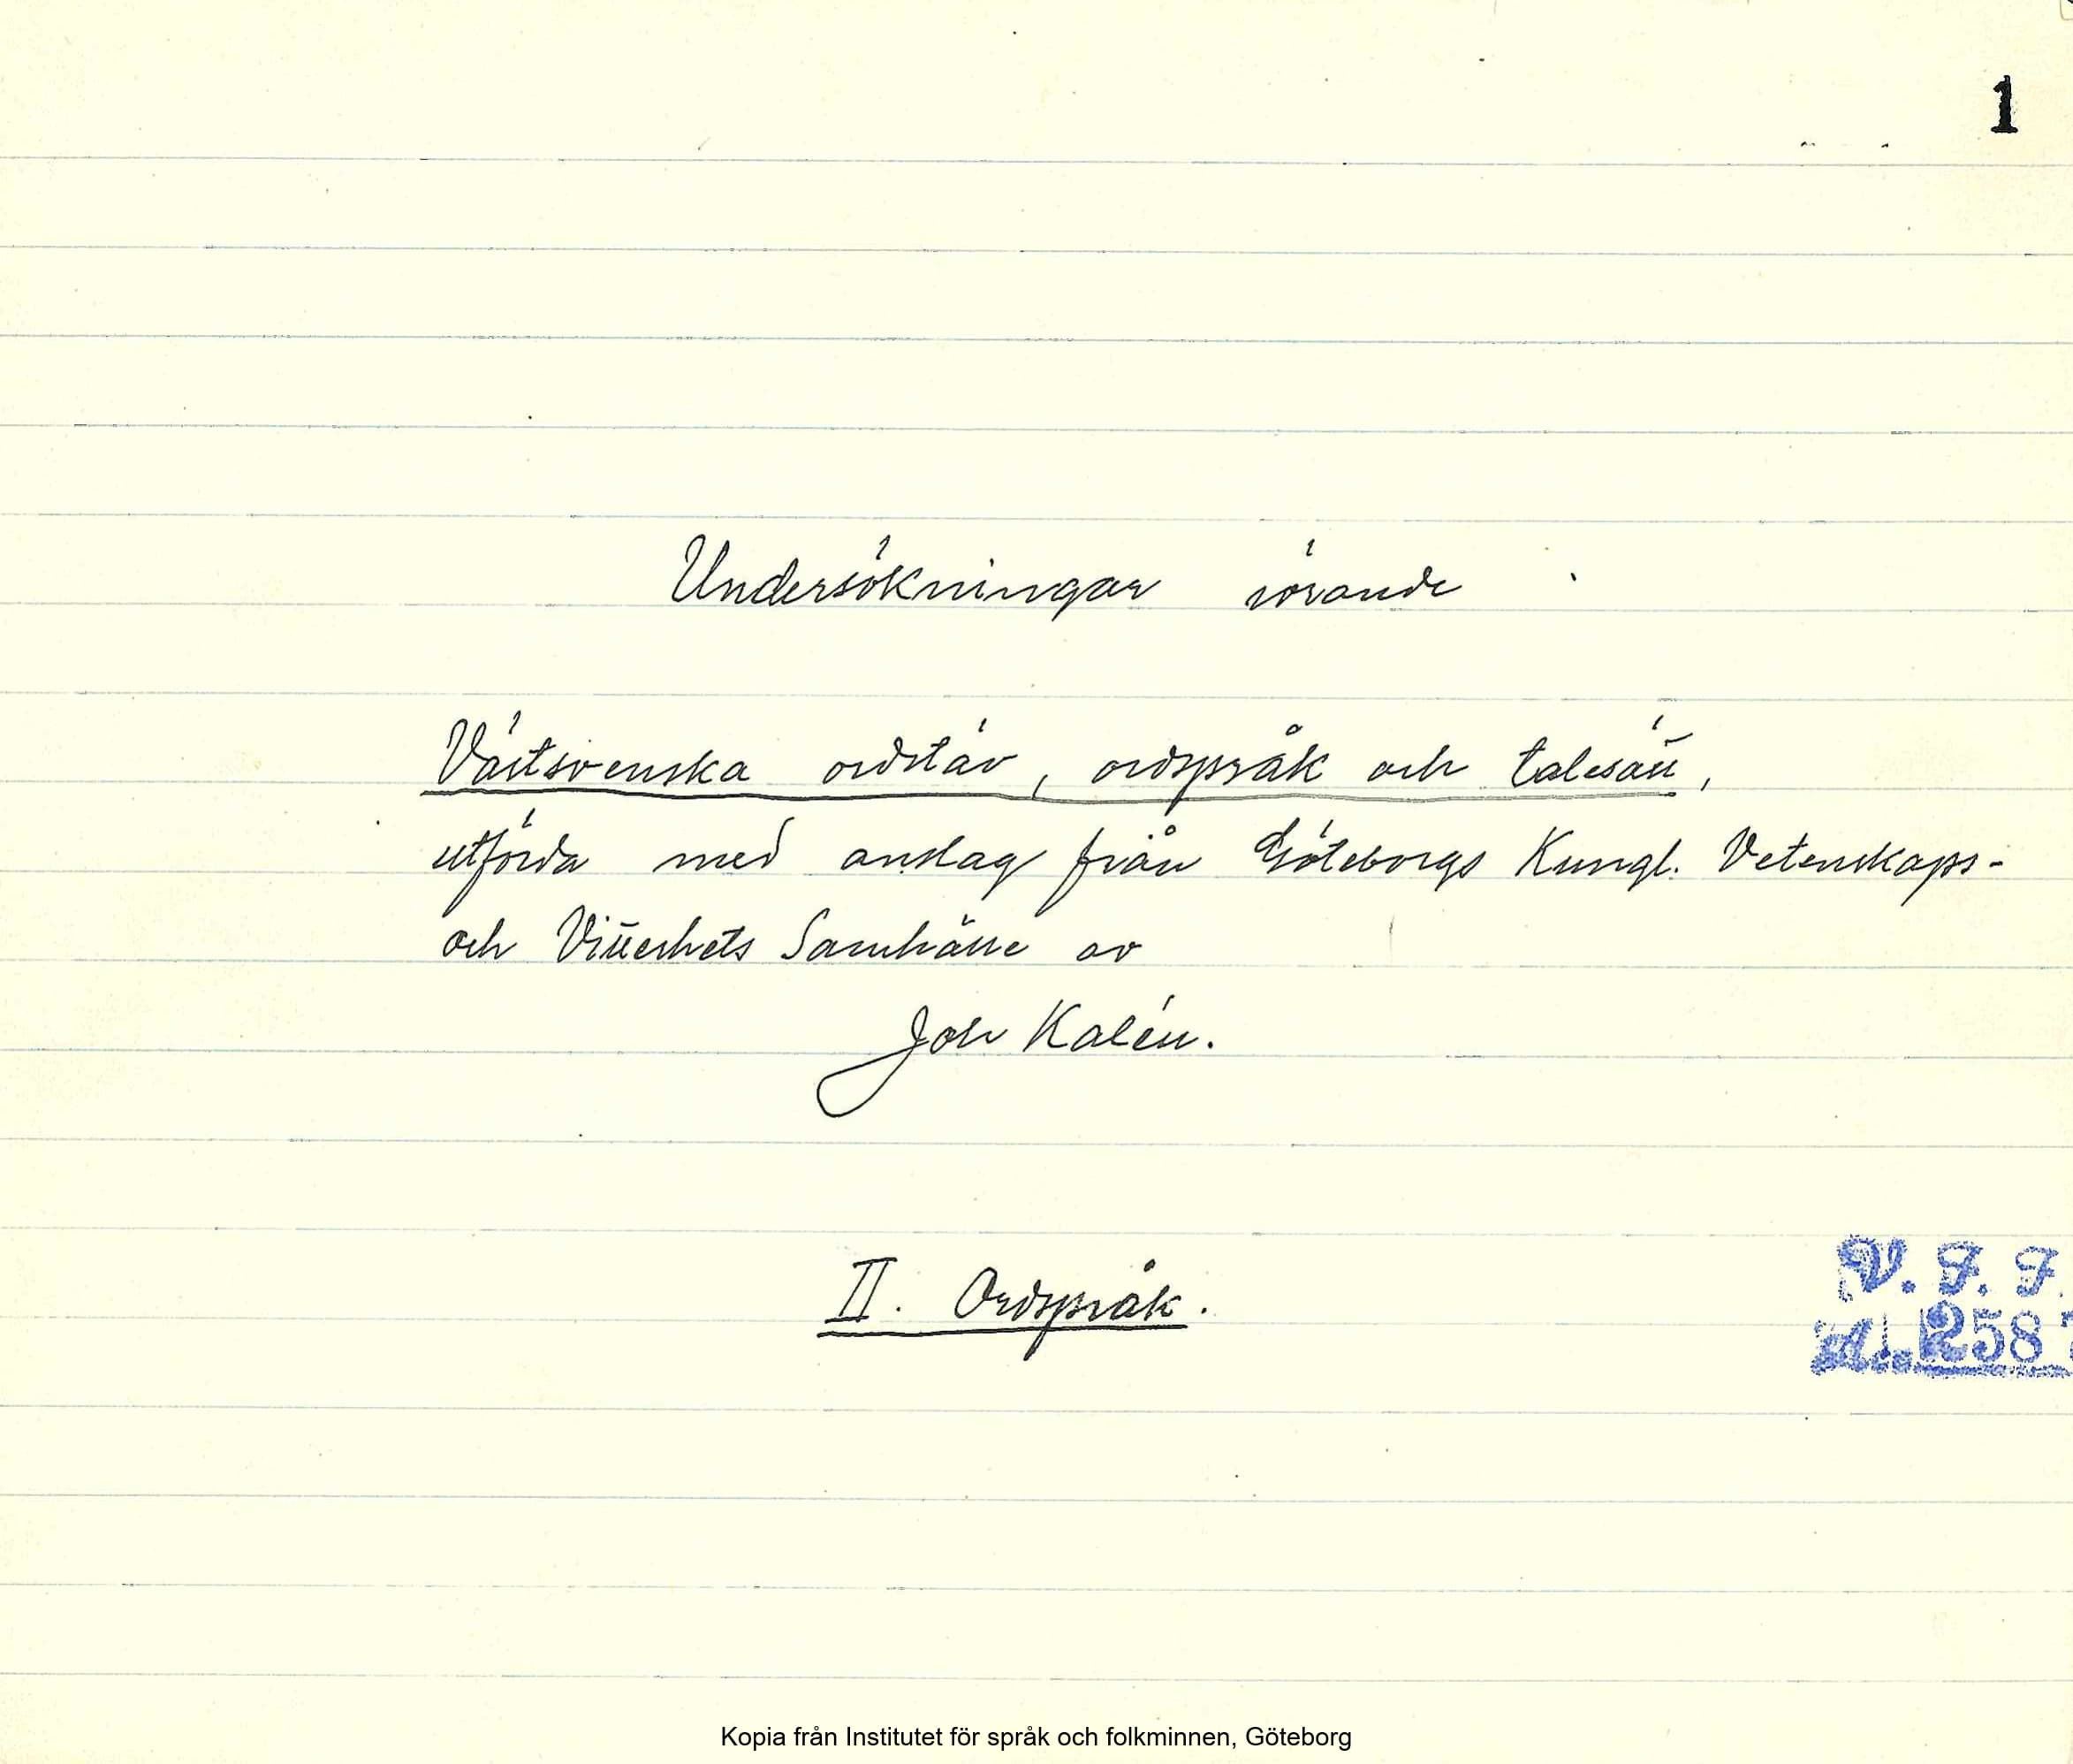 1
Undersökningar rörande
Västsvenska ordstäv, ordspråk och talesätt,
utförda med anslag från Göteborgs Kungl. Vetenskaps-
och Vitterhets Samhälle av
Joh Kalén.
II. Ordspråk.
V. F. F.
258
Kopia från Institutet för språk och folkminnen, Göteborg